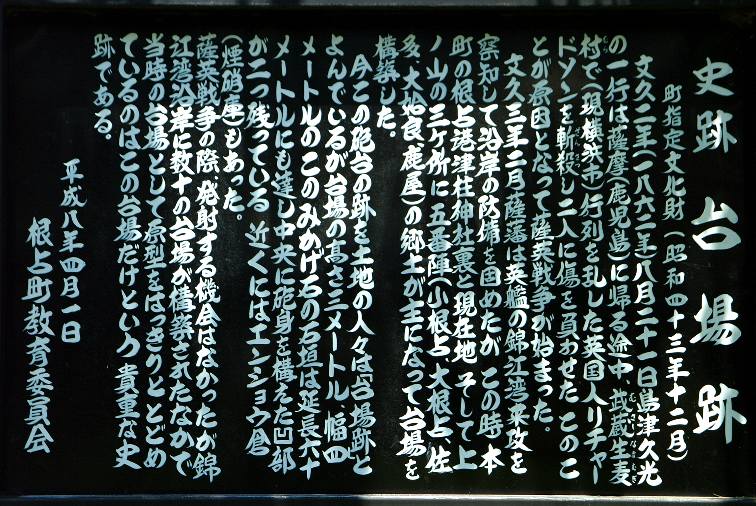 史跡 台場跡
町指定文化財(昭和四十三年十二月)
文久二年(一八六二年)八月二十一日島津久光
の一行は薩摩(鹿児島)に帰る途中、武蔵生麦
村で(現横浜市)行列を乱した英国人リチャー
ドソンを斬殺し二人に傷を負わせた このこ
とが原因となって薩英戦争が始まった。
文久三年二月薩藩は英艦の錦江湾来攻を
察知して沿岸の防備を固めたが この時 本
町の根占港津柱神社裏と現在地 そして上
ノ山の三ケ所に五番陣(小根占 大根占、佐
多、大姶良、鹿屋)の郷士が主になって台場を
構築した。
今この砲台の跡を土地の人々は「台場跡」と
よんでいるが台場の高さ二メートル、幅四
メートルのこのみかげ石の石垣は延長六十
メートルにも達し中央に砲身を構えた凹部
が二つ残っている 近くにはエンショウ倉
(煙硝屋)もあった。
薩英戦争の際、発射する機会はなかったが錦
江湾沿岸に数十の台場が構築されたなかで
当時の台場として原型をはっきりととどめ
ているのはこの台場だけという 貴重な史
跡である。
平成八年四月一日
根占町教育委員会